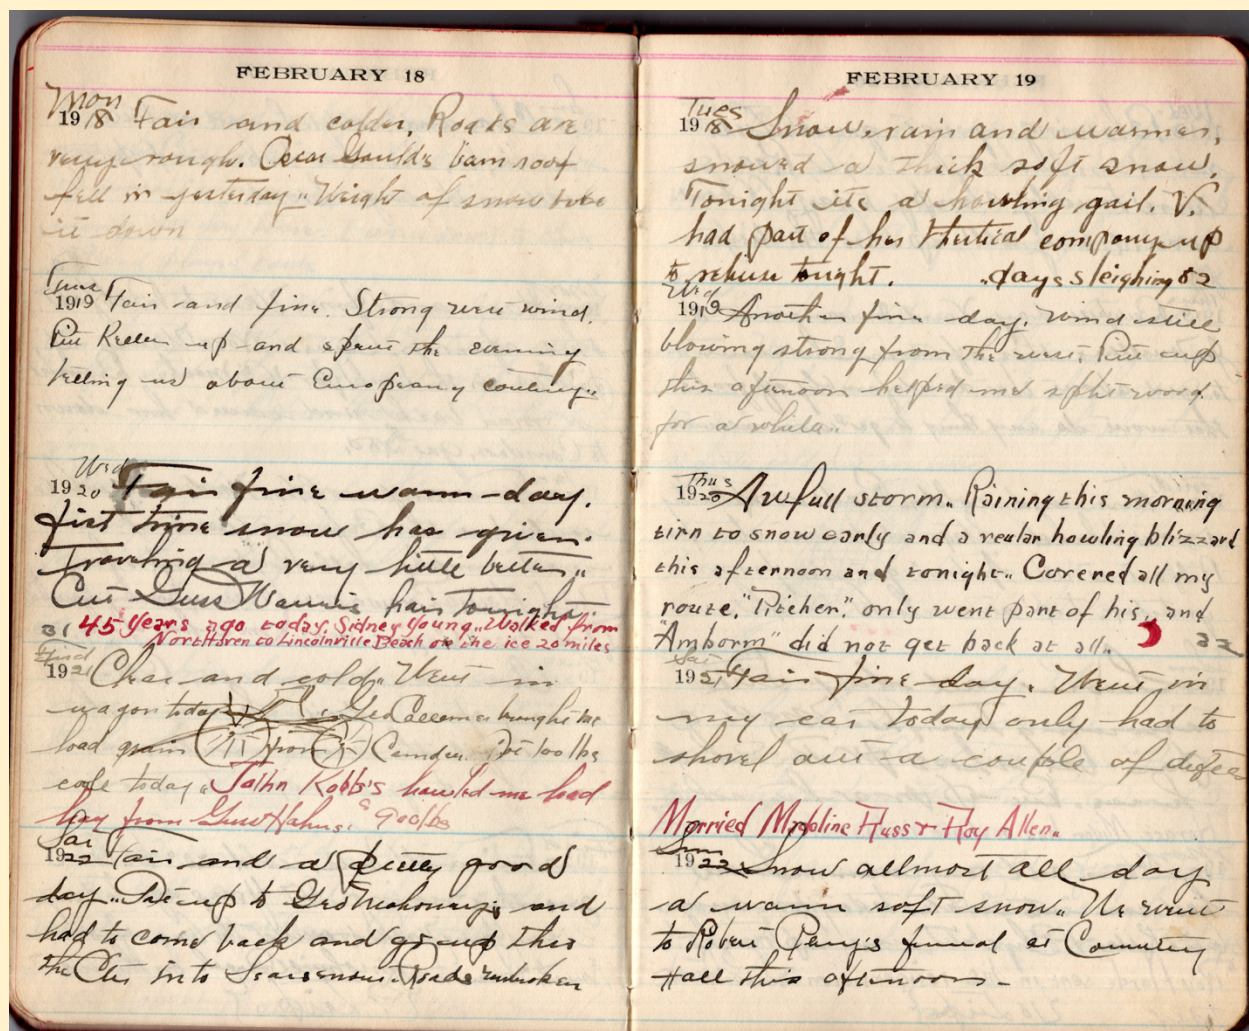 FEBRUARY 18
Mon
1918 Fair and colder, Roads are
very rough. Oscar Gould's barn roof
fell in yesterday.. Weight of snow broke
it down
Tues
1919 Fair and fine. Strong west wind.
up and spent the evening
telling us about European country..
Wed
1920 Fair fine warm day.
first time snow has given.
Traveling a very little better..
Cut Guss hair tonight.
31 45 years ago today, Sidney Young.. Walked from
North Haven to Lincolnville Beach on the ice 20 miles
1921 Clear and cold.. Went in
wagon today Geo brought me
load grain from Camden. 100 lbs
today.. John Robb's hauled me load
hay from Guss Hahns. 900 lbs
Sat
1922 Fair and a pretty good
day.. up to Geo Mahoney's and
had to come back and go up thro
the into Searsmont. Roads unbroken
FEBRUARY 19
Tues
1918 Snow, rain and warmer,
snowed a thick soft snow.
Tonight its a howling gail. V.
had part of her company up
to tonight. ..days sleighing 82
Wed
1919 Another fine day. Wind still
blowing strong from the west. up
this afternoon helped me split wood
for a while..
Thus
1920 Awfull storm.. Raining this morning
tirn to snow early and a reular howling blizzard
this afternoon and tonight.. Covered all my
route, "Pitcher" only went part of his, and
"Amborm" did not get back at all.. 32
Sat
1921 Fair fine day. Went in
my car today only had to
shovel out a couple of
Married Madoline Huss & Hoy Allen..
Sun
1922 Snow allmost all day
a warm soft snow.. We went
to Robert Perry's funeral at Comunity
Hall this afternoon.